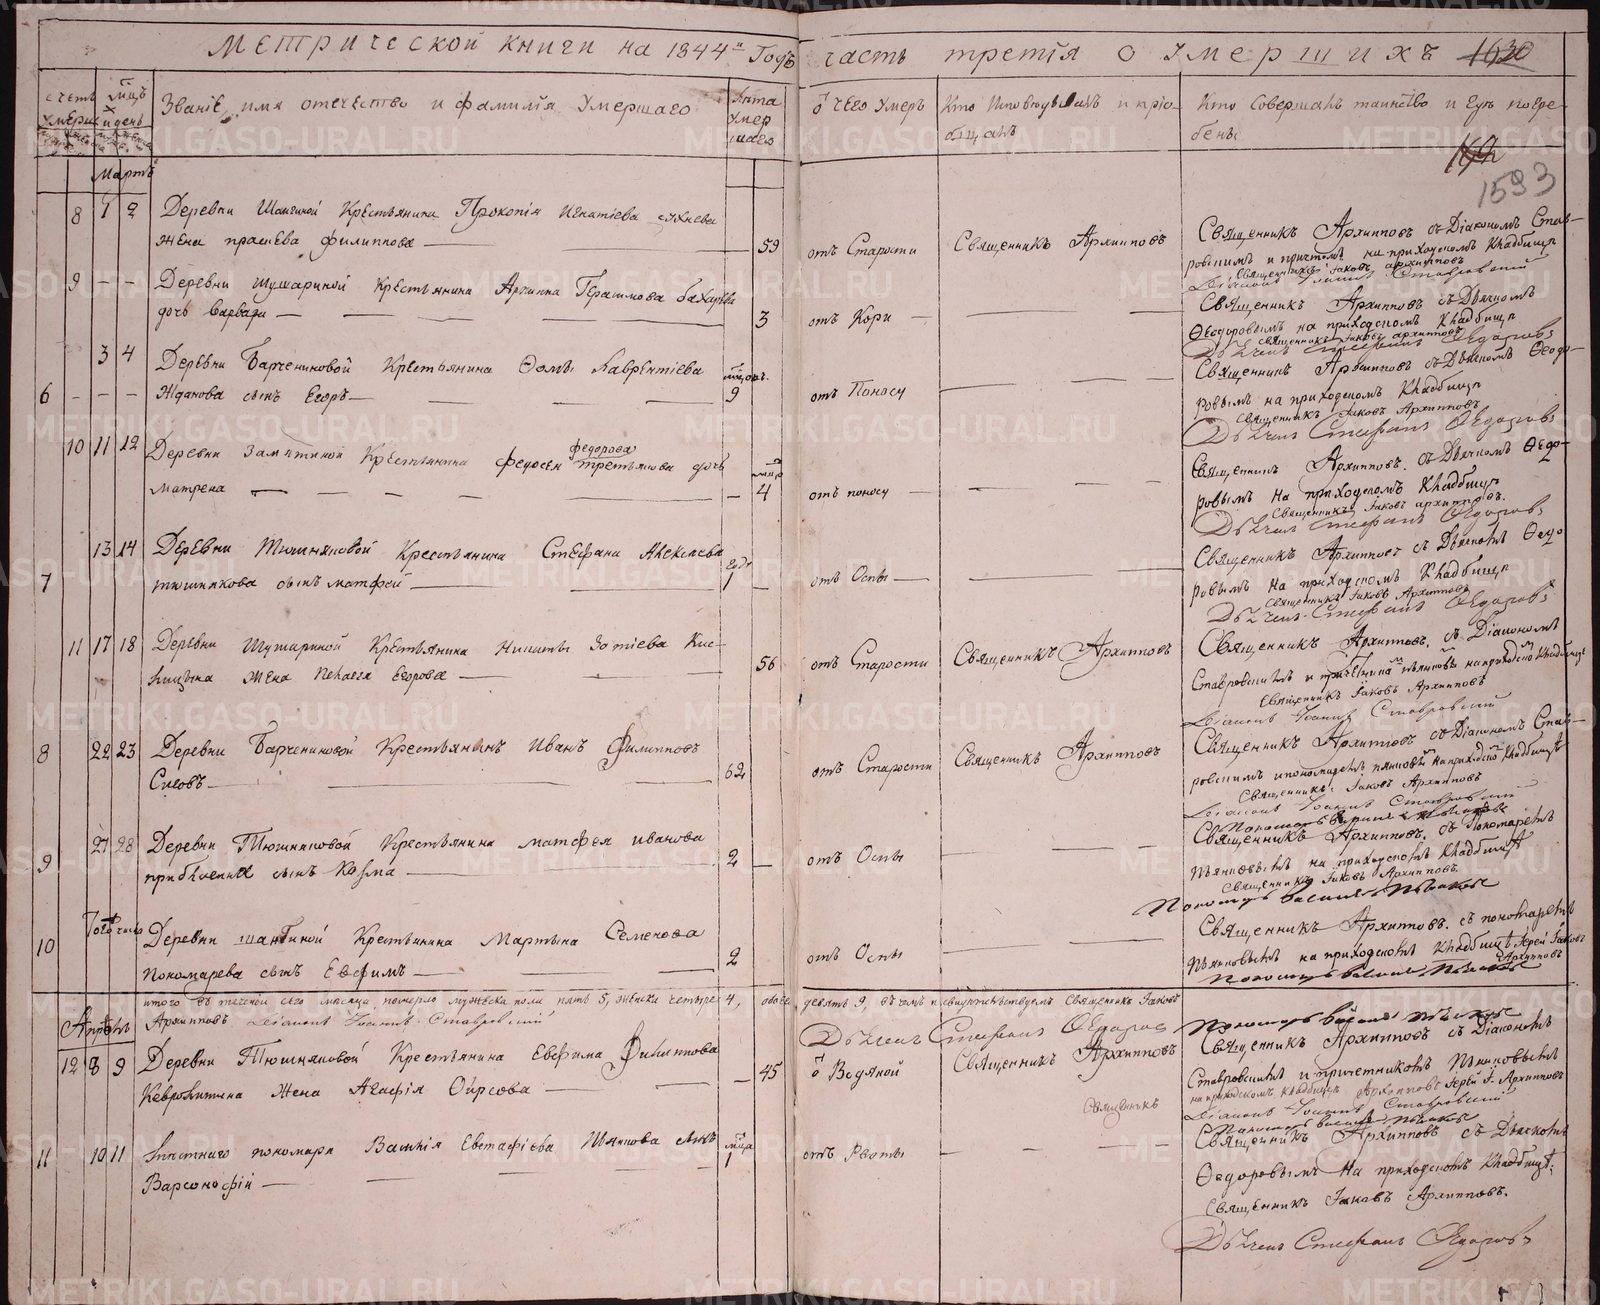 Метрической книги на 1844й Годъ часть третія о умершихъ
1593
Званіе, имя отечество и фамилія умершаго
Лѣта умер шаго
о чего умеръ
Кто исповѣдывалъ и прiо-
бщалъ
Кто совершалъ таинство и гдѣ погре-
бены
Мартъ
8 1 2 Деревни Шангиной Крестьянина Прокопія Игнатіева
жена филиппова 59 отъ Старости Священникъ Архипповъ
Священникъ Архипповъ съ Діакономъ Став-
ровскимъ и причтомъ на приходскомъ кладбищѣ
Священникъ Іаковъ Архипповъ
Діаконъ Іоаннъ Ставровскій
9 - - Деревни Шушариной Крестьянина Архипа Герасимова Бахарева
дочь Варвара 3 отъ Кори
Священникъ Архипповъ съ Дьячкомъ
Ѳеодоровымъ на приходскомъ кладбищѣ
Священникъ Іаковъ Архипповъ
Дьячекъ Стефанъ Ѳедоровъ
3 4 Деревни Барчениковой Крестьянина Ѳомы Лаврентіева
6 - - - Жданова сынъ Егоръ 9 отъ Поносу
Священникъ Архипповъ съ Дьячкомъ Ѳеодо-
ровымъ на приходскомъ кладбищѣ
Священникъ Іаковъ Архипповъ
Дьячекъ Стефанъ Ѳедоровъ
10 11 12 Деревни Замятиной Крестьянина федосеи федорова третьякова дочь
матрена 4 отъ поносу
Священникъ Архипповъ съ Дьячкомъ Ѳеодо-
ровымъ на приходскомъ кладбищѣ
Священникъ Іаковъ Архипповъ.
Дьячекъ Стефанъ Ѳедоровъ
13 14 Деревни Тюшняковой Крестьянина Стефана Алексеева
7 тюшнякова сынъ матфей 1 отъ Оспы
Священникъ Архипповъ съ Дьячкомъ Ѳеодо
ровымъ на приходскомъ кладбищѣ
Священникъ Іаковъ Архипповъ
Дьячекъ Стефанъ Ѳедоровъ
11 17 18 Деревни Шушариной Крестьянина Никиты Зотіева Кис-
лицына жена Пелагея Егорова 56 отъ Старости Священникъ Архипповъ
Священникъ Архипповъ съ Діакономъ
Ставровскимъ и на приходскомъ кладбищѣ
Священникъ Іаковъ Архипповъ
Діаконъ Іоаннъ Ставровскій
8 22 23 Деревни Барчениковой Крестьянинъ Иванъ Филипповъ
62 отъ Старости Священникъ Архипповъ
Священникъ Архипповъ съ Діакономъ Став-
ровскимъ и пономаремъ на приходскомъ кладбищѣ
Священникъ Іаковъ Архипповъ
Діаконъ Іоаннъ Ставровскій
9 27 28 Деревни Тюшняковой Крестьянина матфея иванова
прибылевыхъ сынъ Козма 2 отъ Оспы
Священникъ Архипповъ съ Пономаремъ
на приходскомъ кладбищѣ
Священникъ Іаковъ Архипповъ.
Того числа
10 Деревни Шангиной Крестьянина Мартына Семенова
Пономарева сынъ Евфимъ 2 отъ Оспы
Священникъ Архипповъ съ пономаремъ
на приходскомъ кладбищѣ Іерей Іаковъ Архипповъ
итого въ теченіи сего месяца померло мужеска пола пять 5, женска четыре 4, обоего девять 9, въ чемъ и свидетельствуемъ Священникъ Іаковъ
Архипповъ Діаконъ Іоаннъ Ставровскій Дьячекъ Стефанъ Ѳедоровъ
Апрѣль
12 8 9 Деревни Тюшняковой Крестьянина Евфима Филиппова
жена Агафія Фирсова 45 о Водяной Священникъ Архипповъ
Священникъ
Священникъ Архипповъ съ Діакономъ
Ставровскимъ и причетникомъ
на приходскомъ кладбищѣ Іерей І. Архипповъ
Діаконъ Іоаннъ Ставровскій
10 11 пономаря Василія Евстафіева сынъ
11 Варсонофій 1 отъ Рвоты
Священникъ Архипповъ съ Дьячкомъ
Ѳеодоровымъ на приходскомъ кладбищѣ.
Священникъ Іаковъ Архипповъ.
Дьячекъ Стефанъ Ѳедоровъ
METRIKI.GASO-URAL.RU